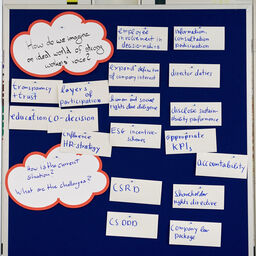 How do we imagine
an ideal world of strong
workers voice?
employee
involvement in
decision-making
information,
consultation
participation
expand definition
of company interest
director duties
transparency
+ trust
layers of
participation
human and social
rights due diligence
disclose sustain-
ability performance
education
CO-decision
influence
HR-strategy
ESG incentive-
schemes
appropriate
KPIs
accountability
How is the current
situation?
What are the challenges?
CSRD
shareholder
rights directive
CSDDD
Company law
package